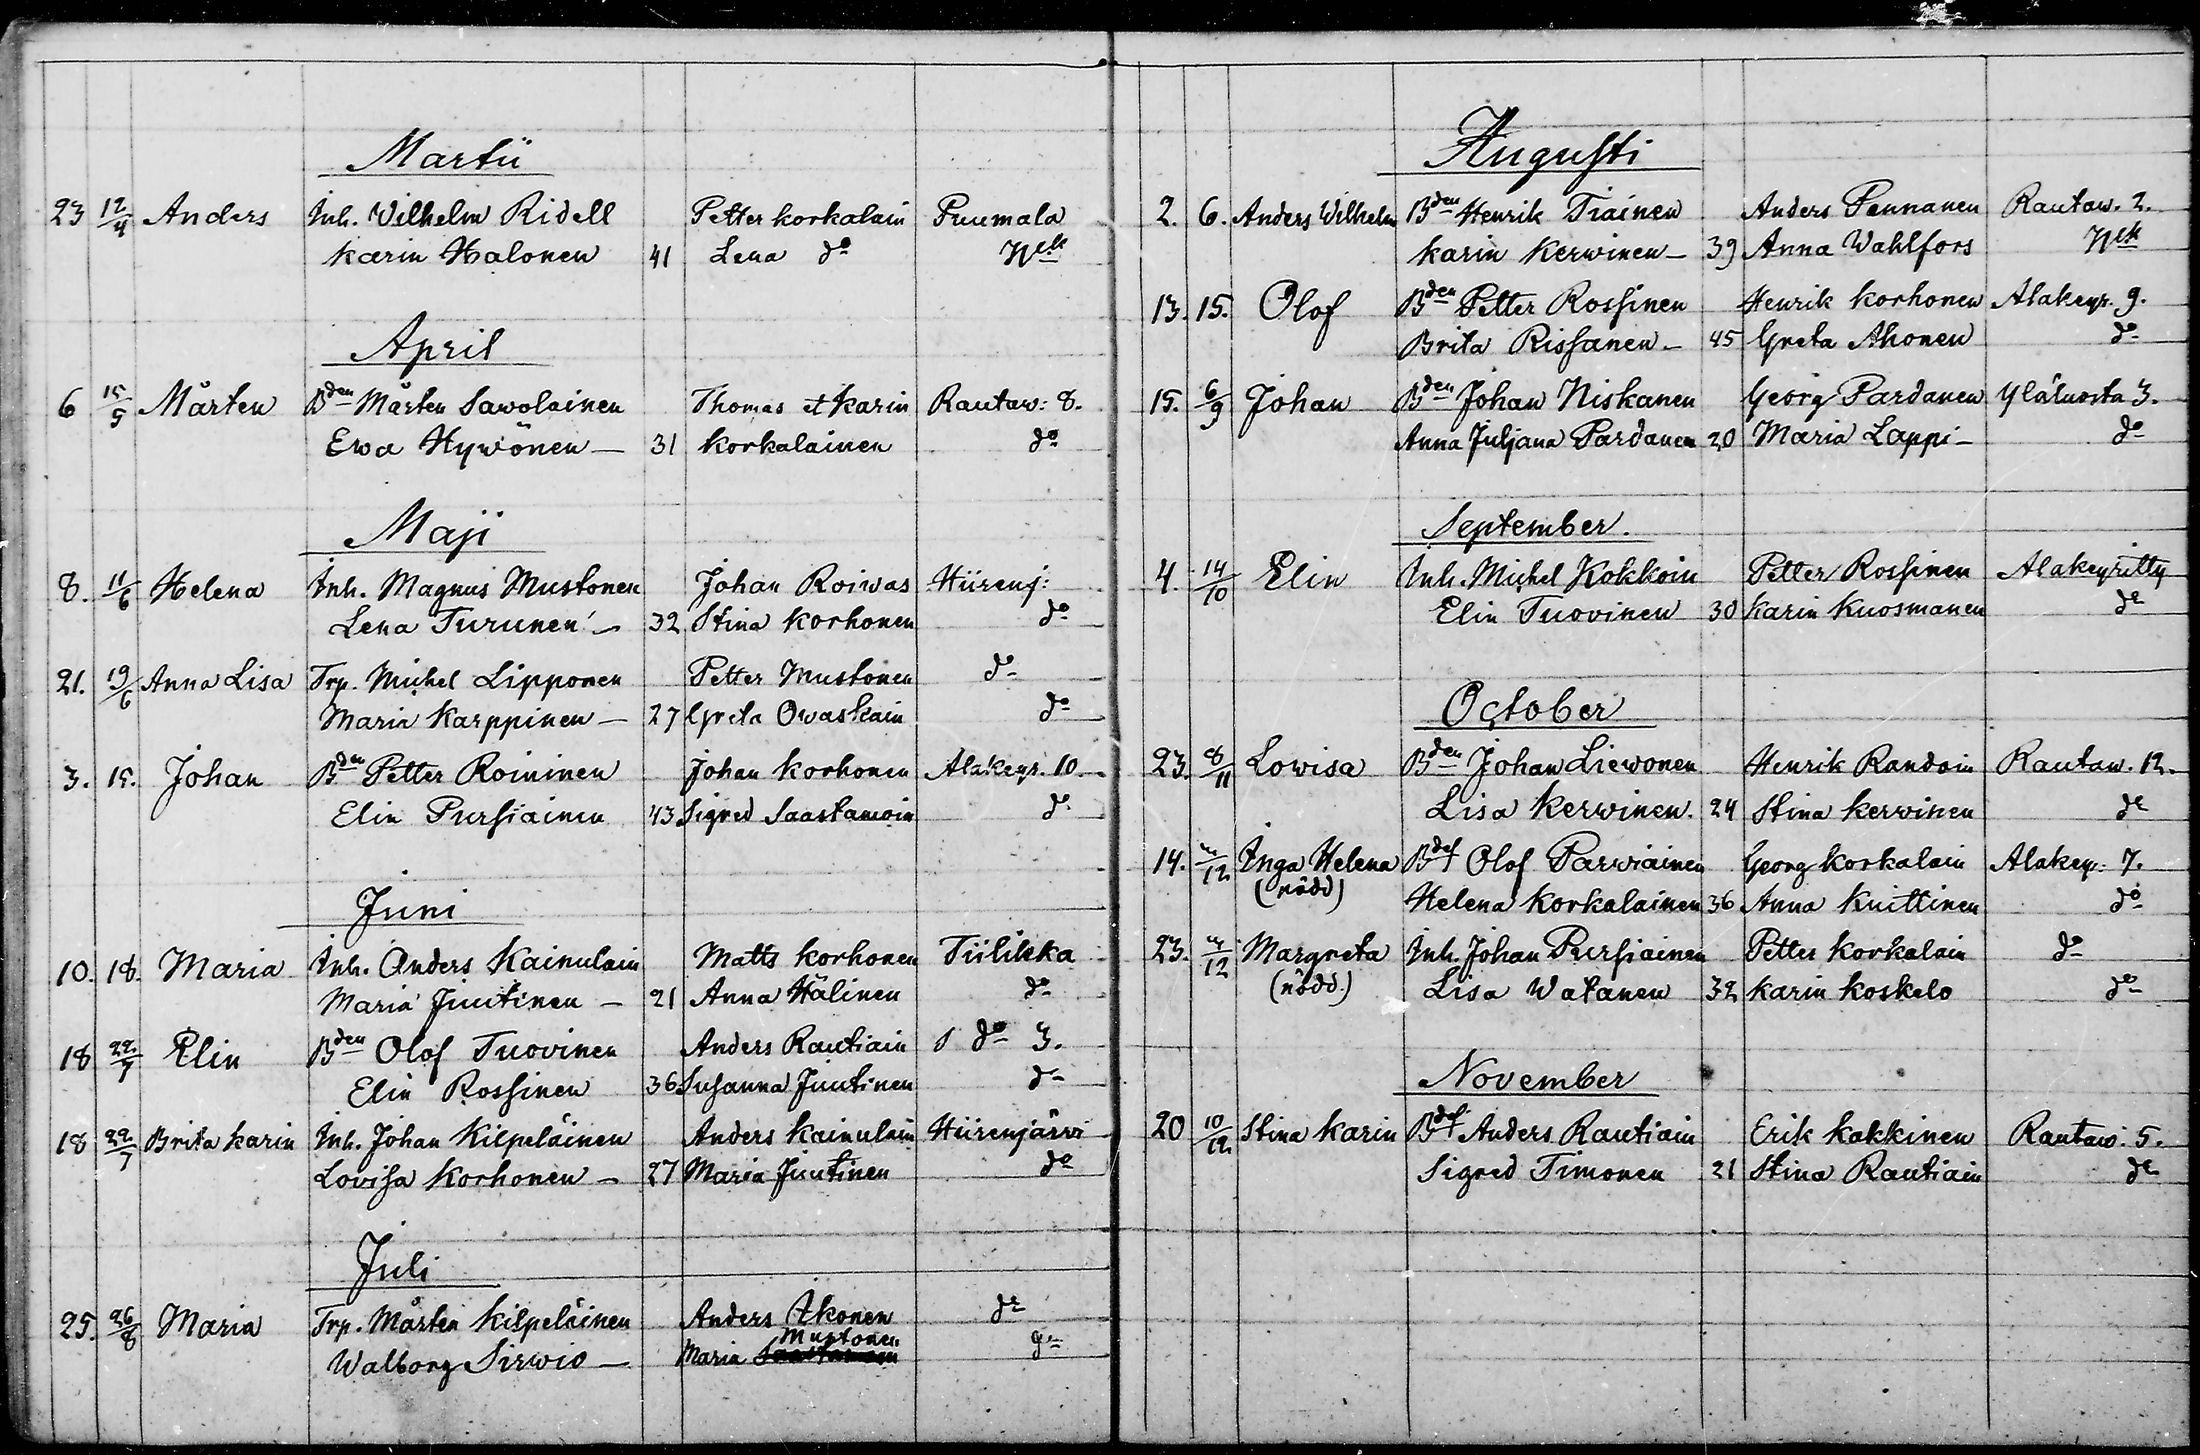 Martii
23 12/4 Anders Inh. Wilhelm Ridell Petter Korkalain Puumala
Karin Halonen 41 Lena do
April
6 15/5 Mårten Bden Mårten Sawolainen Thomas et Karin Rautaw: 8.
Ewa Hywönen — 31 Korkalainen do
Maji
8. 11/6 Helena Inh. Magnus Mustonen Johan Roiwas Hiirenj:
Lena Turunen — 32 Stina Korhonen do
21. 19/6 Anna Lisa Trp. Michel Lipponen Petter Mustonen do
Maria Karppinen — 27 Greta Owaskain do
3. 15. Johan Bden Petter Roininen Johan Korhonen Alakeyr. 10
Elin Pursiainen 43 Sigred Saastamoin do
Juni
10. 18. Maria Inh. Anders Kainulain Matts Korhonen Tiilikka
Maria Juutinen — 21 Anna Hälinen do
18 22/7 Elin Bden Olof Tuovinen Anders Rautiain do 3.
Elin Rossinen 36 Susanna Juutinen do
18 22/7 Brita Karin Inh. Johan Kilpeläinen Anders Kainulain Hiirenjärvi
Lovisa Korhonen — 27 Maria Juutinen do
Juli
25. 26/8 Maria Trp. Mårten Kilpeläinen Anders Ikonen do
Mustonen
Walborg Sirwio — Maria do
Augusti
2. 6. Anders Wilhelm Bden Henrik Tiainen Anders Pennanen Rautaw. 2.
Karin Kerwinen — 39 Anna Wahlfors
13. 15. Olof Bden Petter Rossinen Henrik Korhonen Alakeyr. 9.
Brita Rissanen — 45 Greta Ahonen do
15. 6/9 Johan Bden Johan Niskanen Georg Pardanen Yläluosta 3.
Anna Juljana Pardanen 20 Maria Lappi — do
September.
4. 14/10 Elin Inh. Michel Kokkoin Petter Rossinen Alakeyritty
Elin Tuovinen 30 Karin Kuosmanen do
October
23. 8/11 Lowisa Bden Johan Liewonen Henrik Randoin Rautaw. 12.
Lisa Kerwinen. 24 Stina Kervinen do
14. /12 Inga Helena Bdef Olof Parwiainen Georg Korkalain Alakey: 7.
(nödd) Helena Korkalainen 36 Anna Knittinen do
23. /12 Margreta Inh. Johan Pursiainen Petter Korkalain do
(nödd.) Lisa Watanen 32 Karin Koskelo do
November
20 10/12 Stina Karin Bdef Anders Rautiain Erik Kakkinen Rautaw. 5.
Sigred Timonen 21 Stina Rautiain do